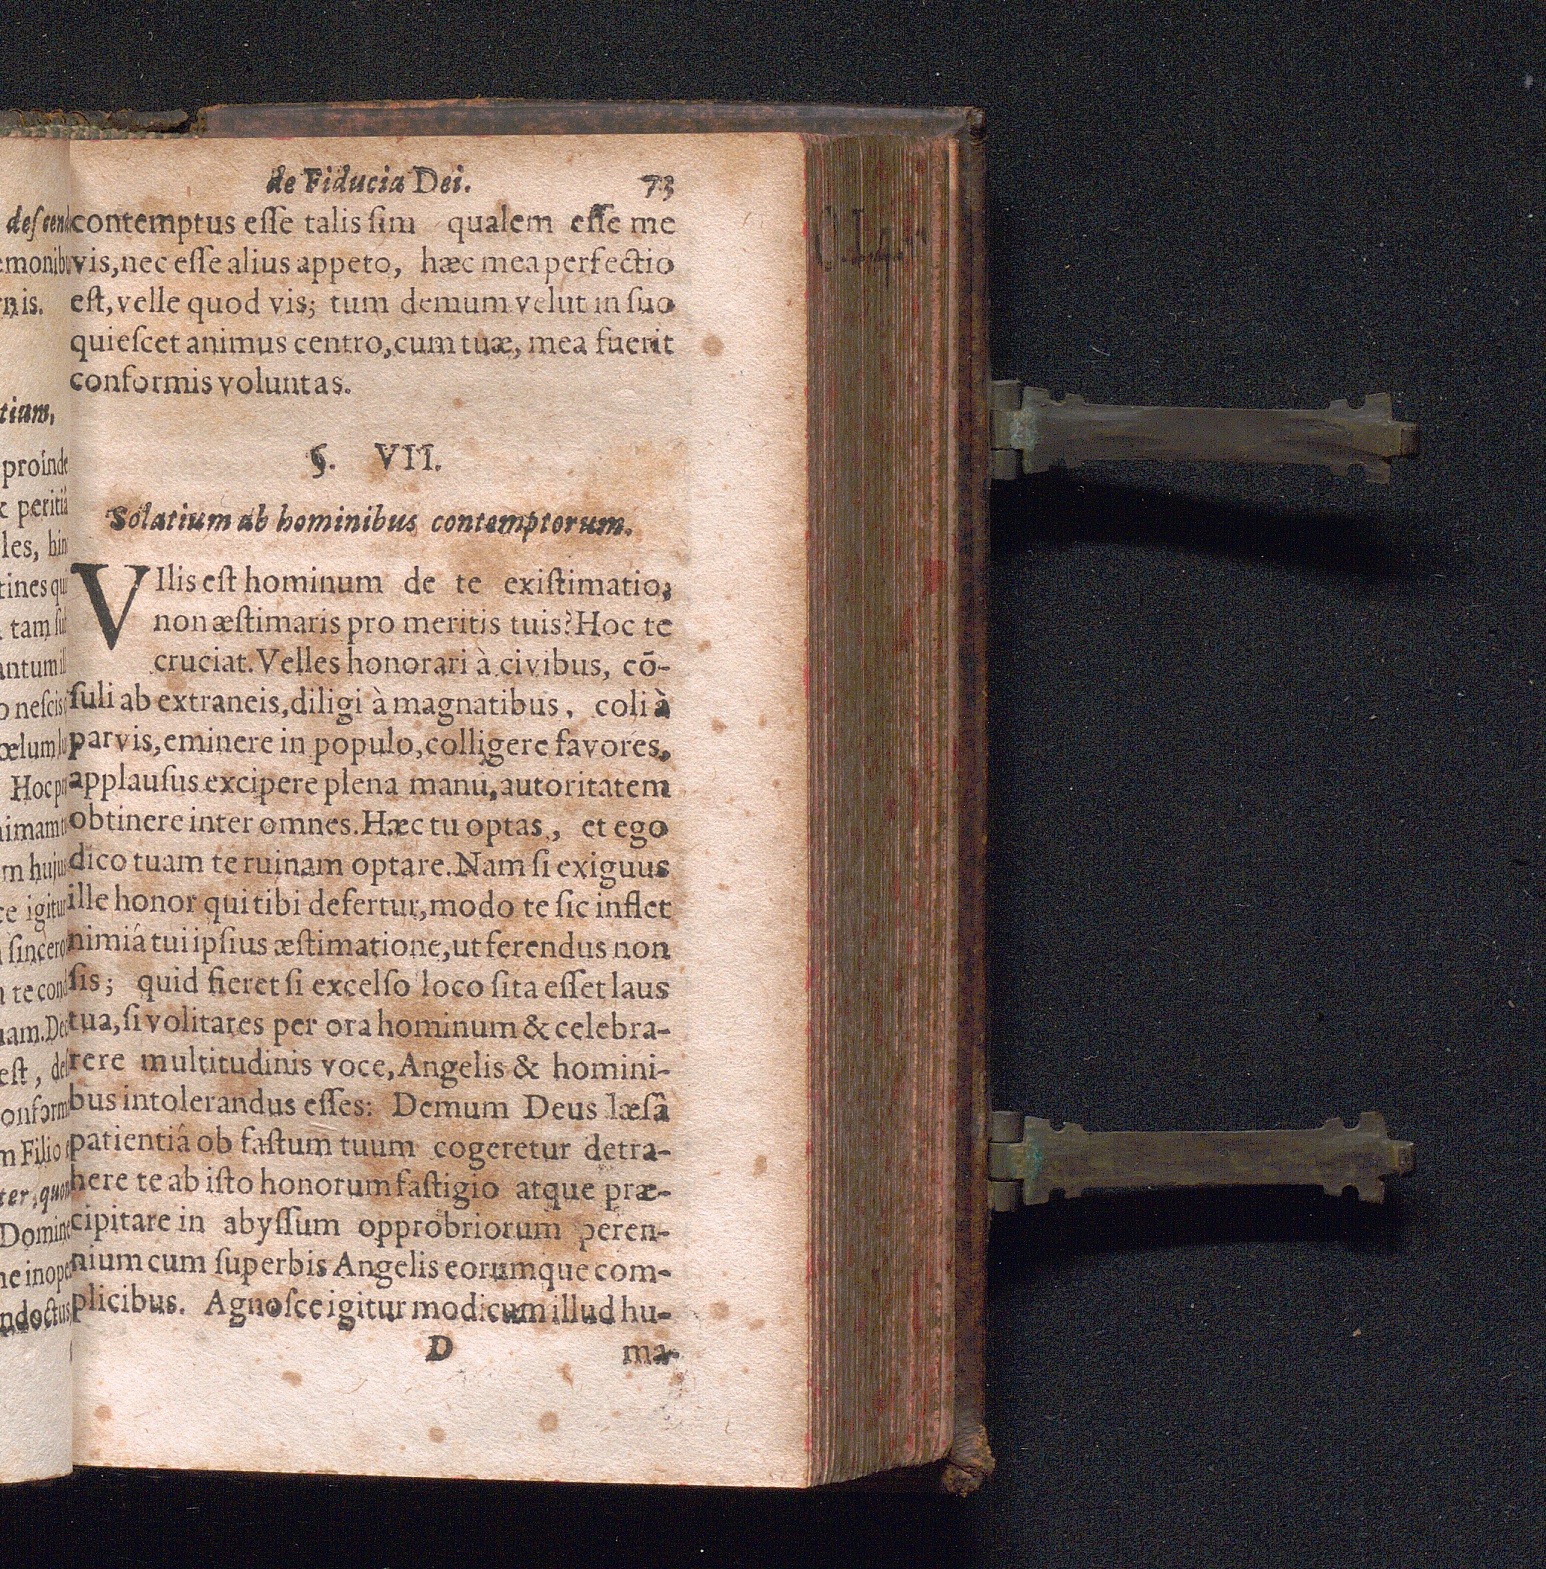 de Fiducia Dei. 73
contemptus eſſe talis ſim qualem eſſe me
vis, nec eſſe alius appeto, hæc mea perfectio
eſt, velle quod vis; tum demum velut in ſuo
quieſcet animus centro, cum tuæ, mea fuerit
conformis voluntas.
§. VII.
Solatium ab hominibus contemptorum.
VIlis eſt hominum de te exiſtimatio,
non æſtimaris pro meritis tuis? Hoc te
cruciat. Velles honorari à civibus, cō-
ſuli ab extraneis, diligi à magnatibus, coli à
parvis, eminere in populo, colligere favores,
applauſus excipere plena manu, autoritatem
obtinere inter omnes. Hæc tu optas, et ego
dico tuam te ruinam optare. Nam ſi exiguus
ille honor qui tibi defertur, modo te ſic inflet
nimiâ tui ipſius æſtimatione, ut ferendus non
ſis; quid fieret ſi excelſo loco ſita eſſet laus
tua, ſi volitares per ora hominum & celebra-
rere multitudinis voce, Angelis & homini-
bus intolerandus eſſes: Demum Deus læſâ
patientiâ ob faſtum tuum cogeretur detra-
here te ab iſto honorum faſtigio atque præ-
cipitare in abyſſum opprobriorum peren-
nium cum ſuperbis Angelis eorumque com-
plicibus. Agnoſce igitur modicum illud hu-
D ma-